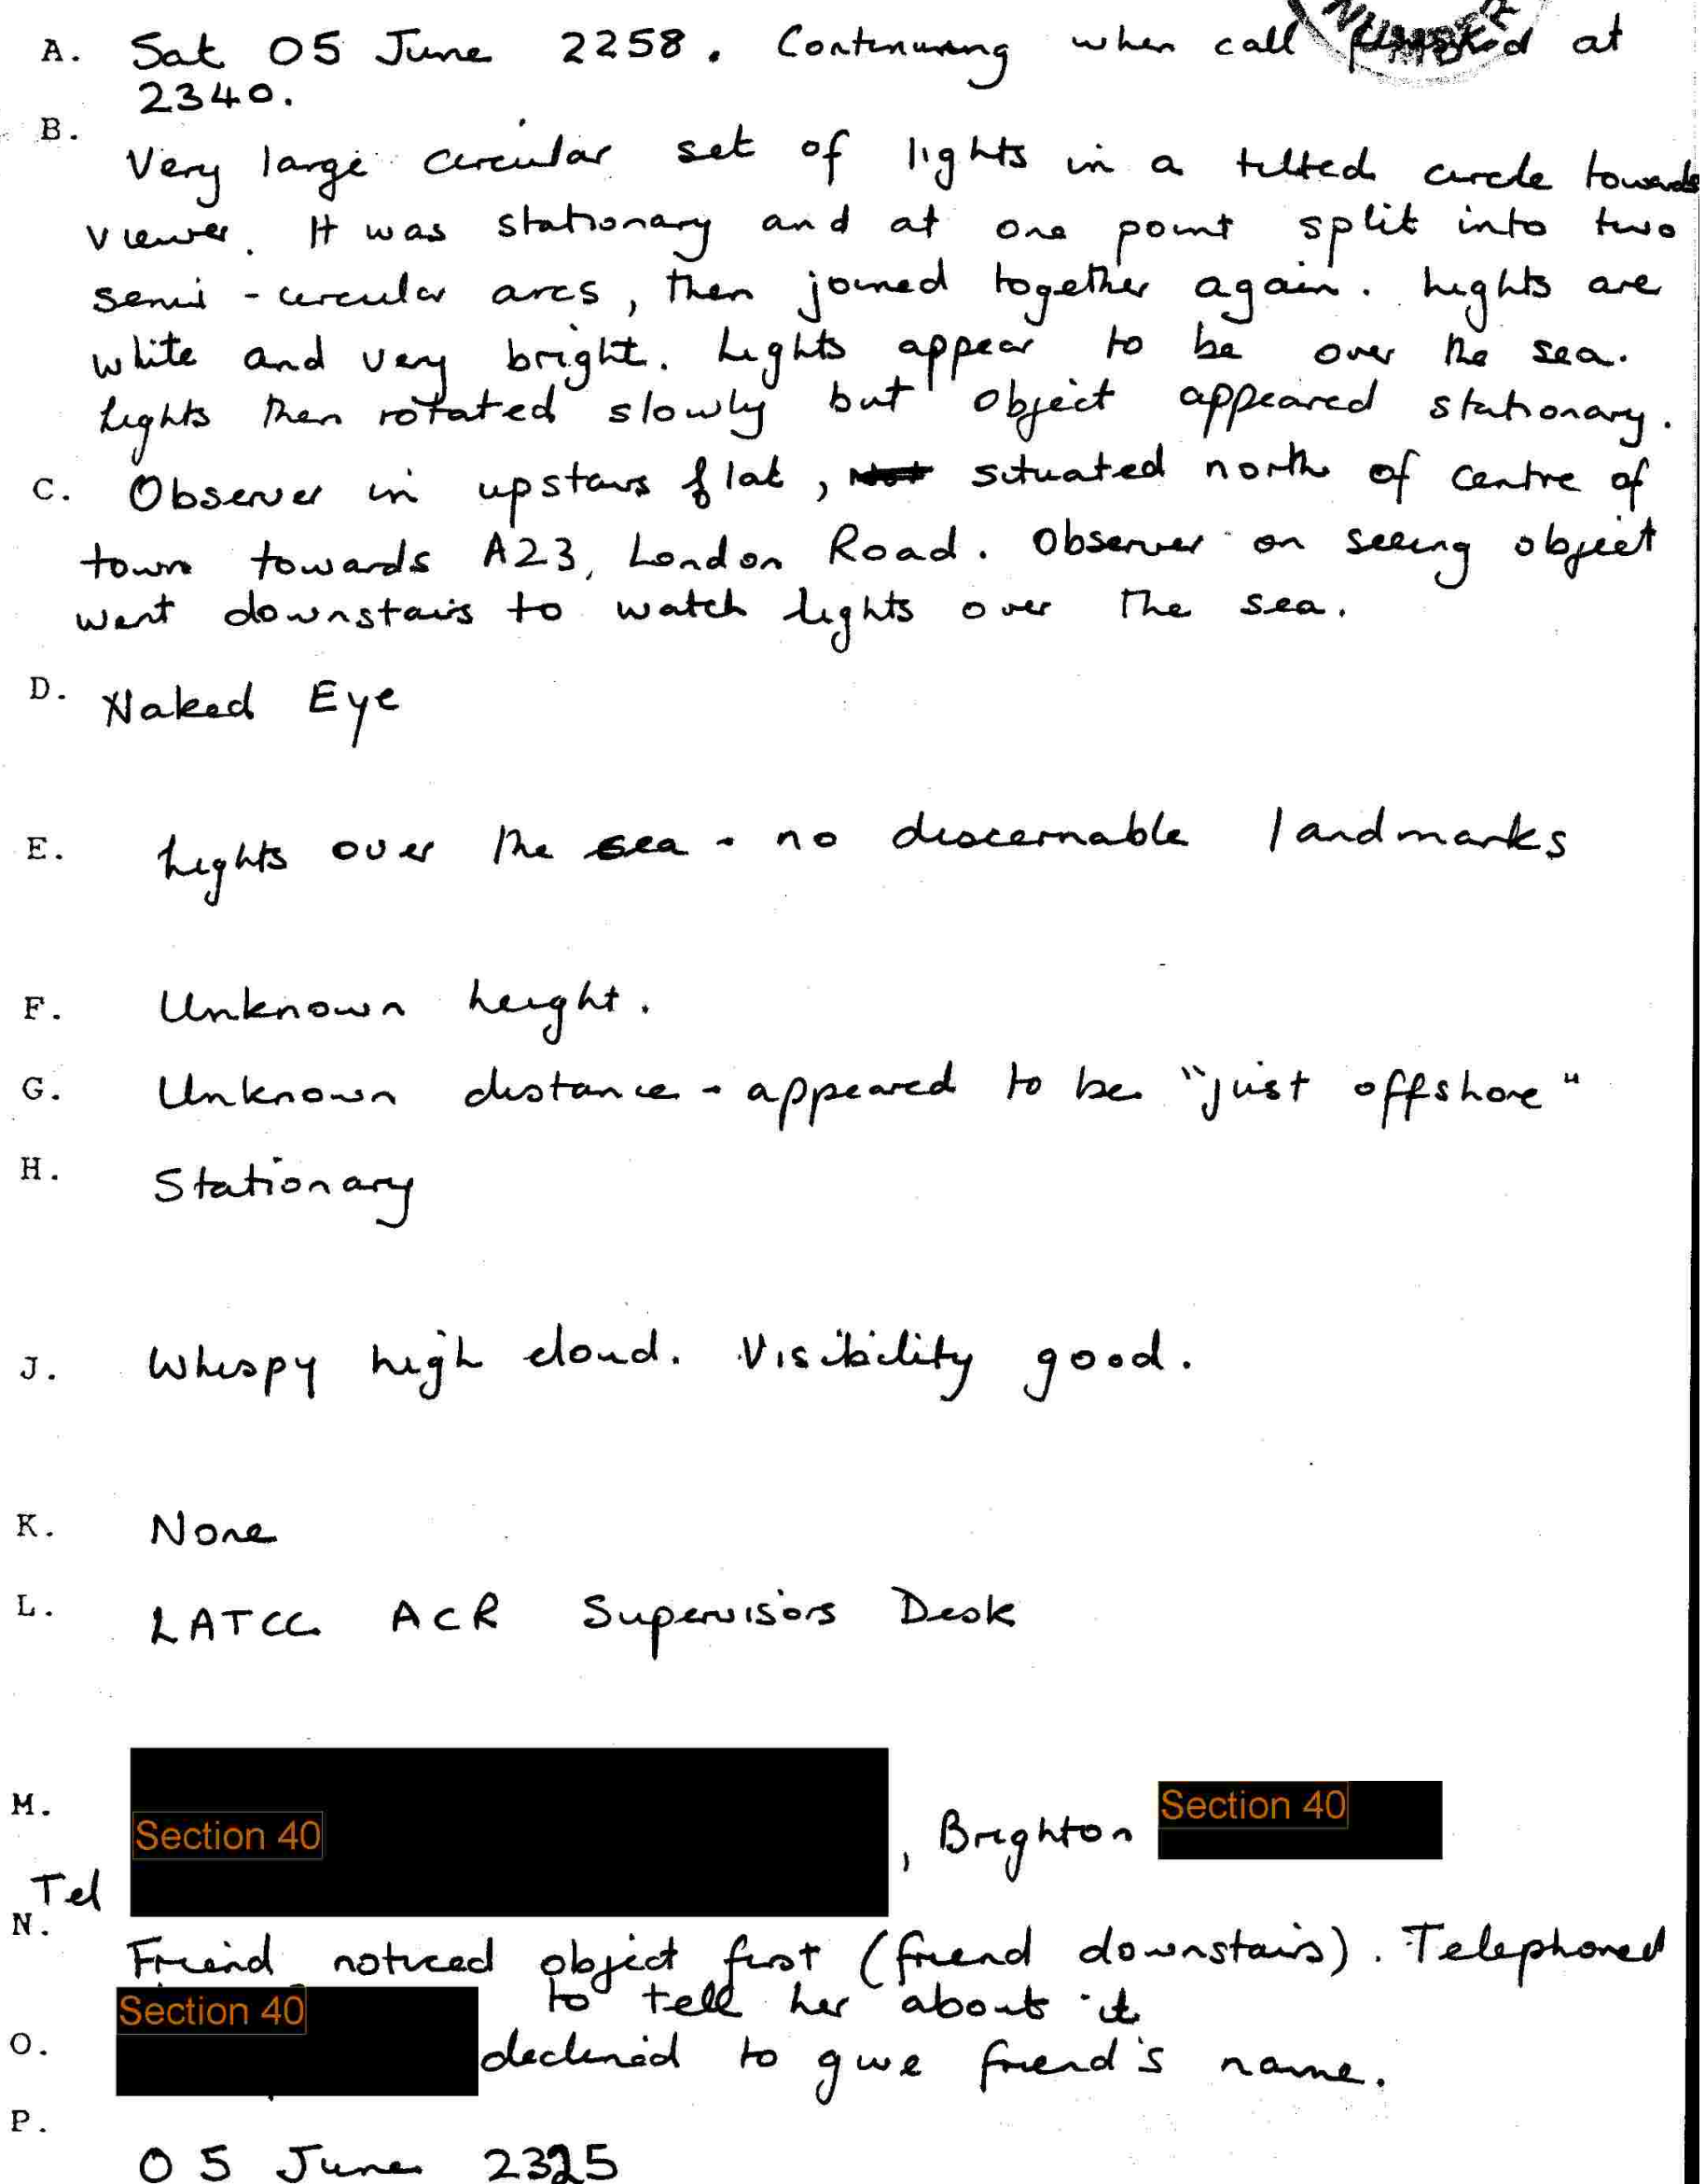 A. Sat 05 June 2258. Continuing when call finished at
2340.
B.
Very large circular set of lights in a tilted circle towards
viewer. It was stationary and at one point split into two
semi-circular arcs, then joined together again. Lights are
white and very bright. Lights appear to be over the sea.
Lights then rotated slowly but object appeared stationary.
C. Observer in upstairs flat, situated north of centre of
town towards A23, London Road. Observer on seeing object
went downstairs to watch lights over the sea.
D. Naked Eye
E. Lights over the sea - no discernable landmarks
F. Unknown height.
G. Unknown distance - appeared to be "just offshore"
H. Stationary
J. Whispy high cloud. Visibility good.
K. None
L. LATCC ACR Supervisors Desk
M. Section 40, Brighton Section 40
Tel
N.
Friend noticed object first (friend downstairs). Telephoned
Section 40 to tell her about it
O. declined to give friend's name.
P.
05 June 2325